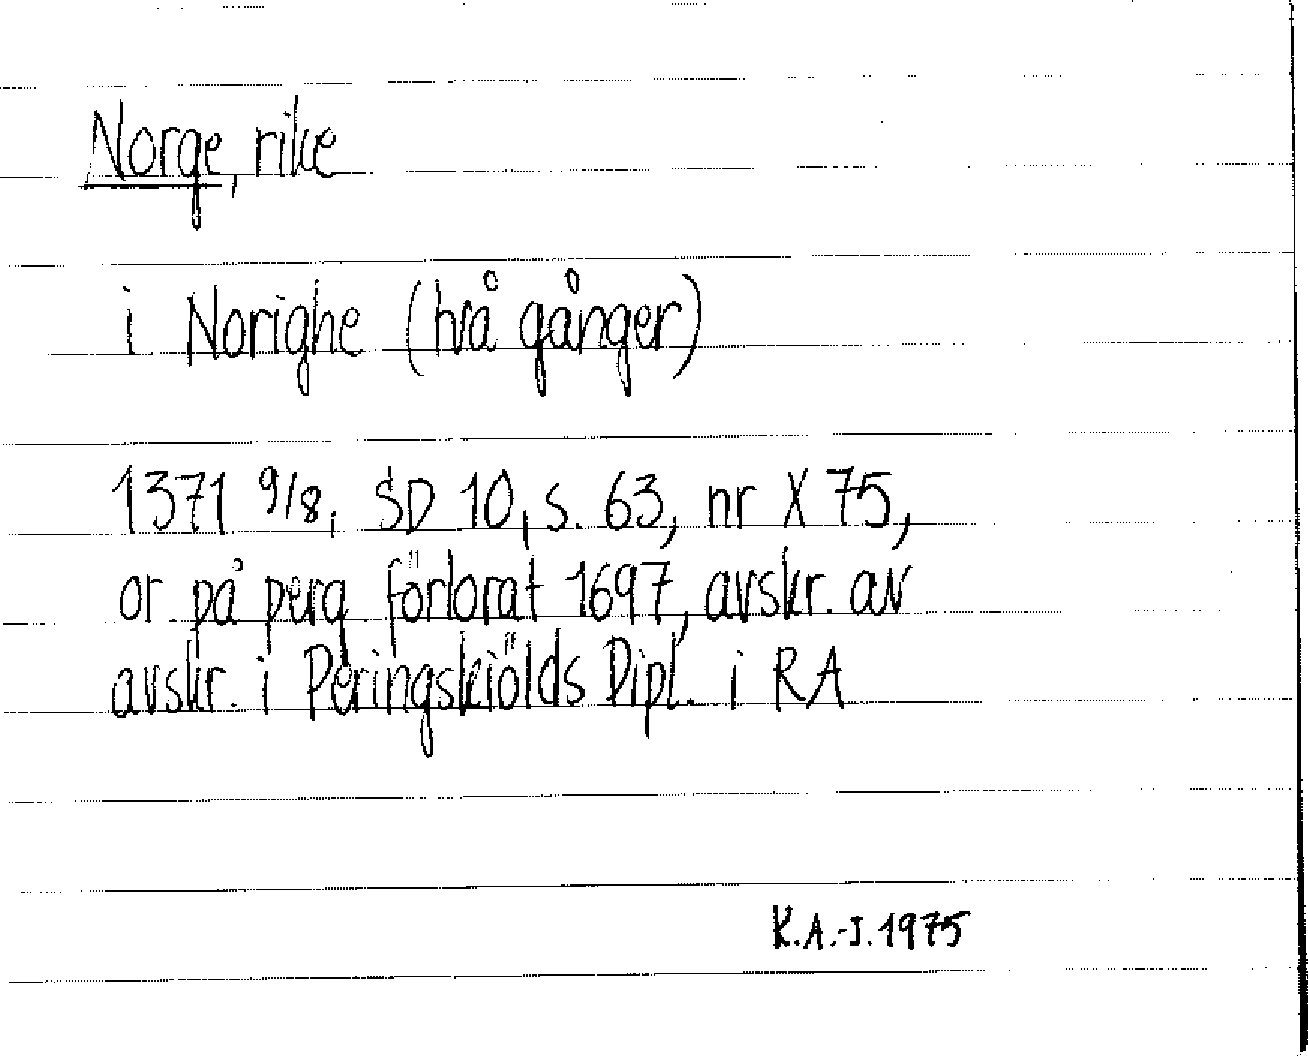 Norge, rike
i Norighe (två gånger)
1371 9/8, SD 10, s. 63, nr X 75,
or på perg förlorat 1697, avskr. av
avskr. i Peringskiölds Dipl. i RA
K.A.-J. 1975